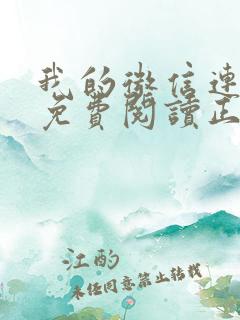 我的微信連
免費閱讀正
江酌
未任同意禁止转载